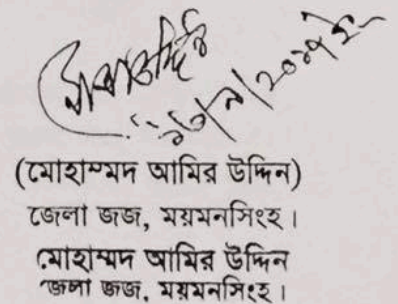 (মোহাম্মদ আমির উদ্দিন)
জেলা জজ, ময়মনসিংহ।
মোহাম্মদ আমির উদ্দিন
জেলা জজ, ময়মনসিংহ।